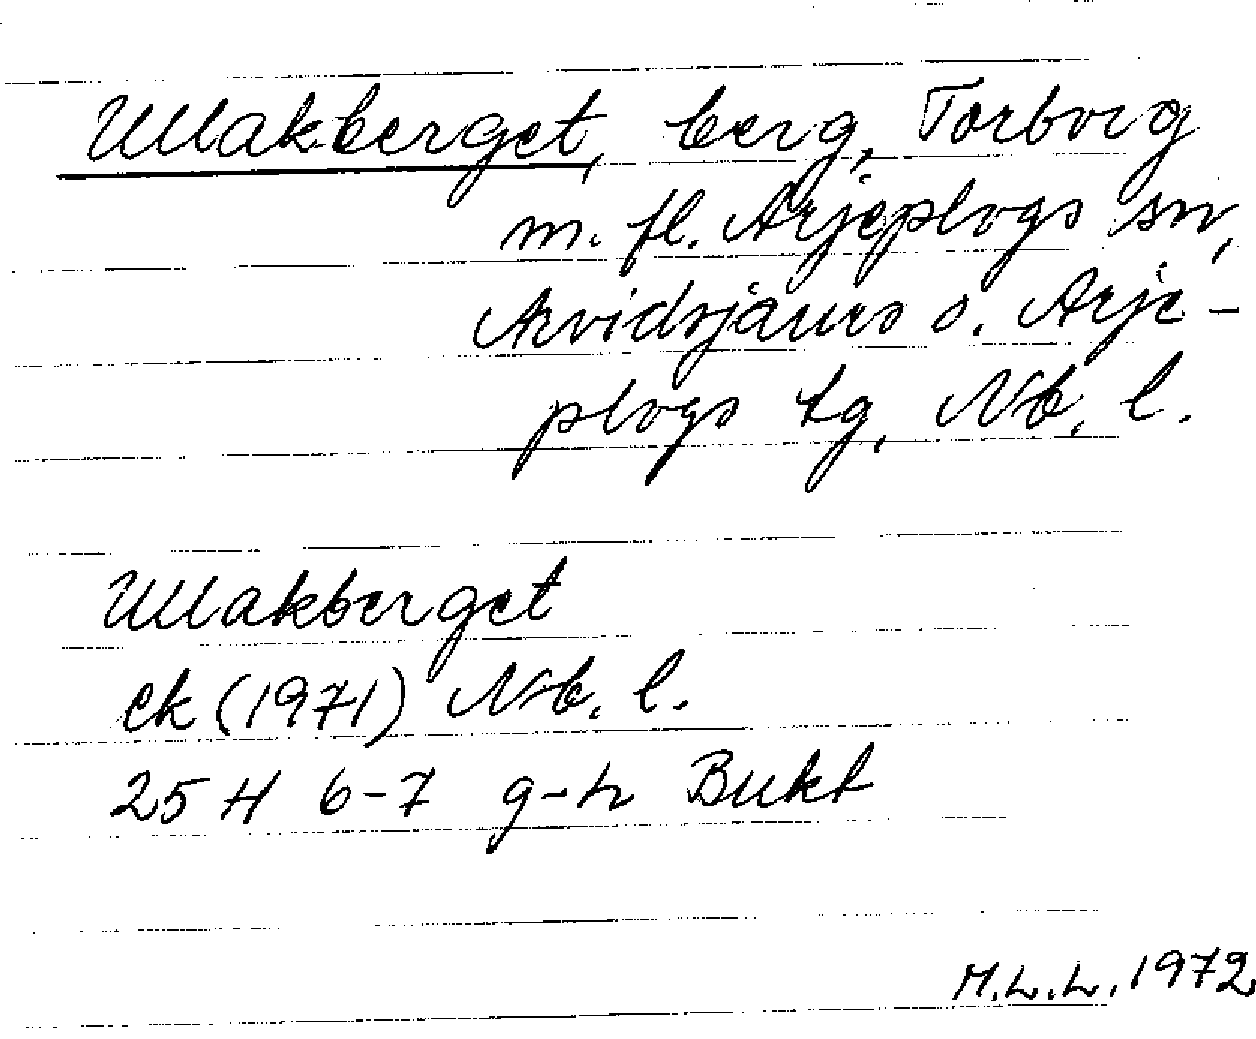 Ullakberget, berg, Torborg
m. fl. Arjeplogs sn,
Arvidsjaurs o. Arje-
plogs tg, Nb. l.
Ullakberget
ek (1971) Nb. l.
25 H 6-7 g-h Bukt
M.L.L. 1972